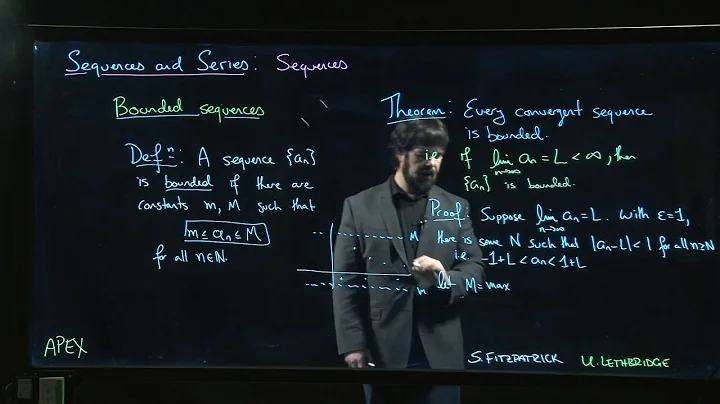 Sequences and Series: Sequences
Bounded sequences
Defn: A sequence {an}
is bounded if there are
constants m, M such that
m ≤ an ≤ M
for all n∈N.
M
m
Theorem: Every convergent sequence
is bounded.
i.e. If lim n→∞ an = L < ∞, then
{an} is bounded.
Proof: Suppose lim n→∞ an = L. With ε=1,
there is some N such that |an-L|<1 for all n≥N
i.e. -1+L < an < 1+L
let M = max
APEX
S. FITZPATRICK
U. LETHBRIDGE